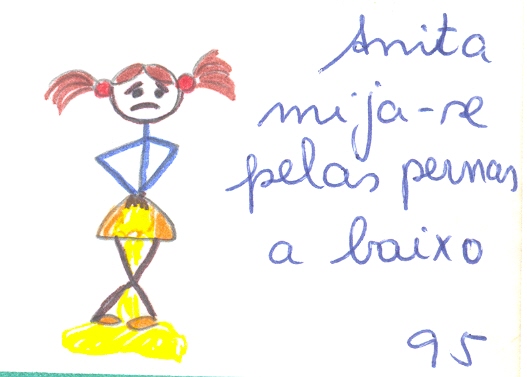 Anita
mija-se
pelas pernas
a baixo
95